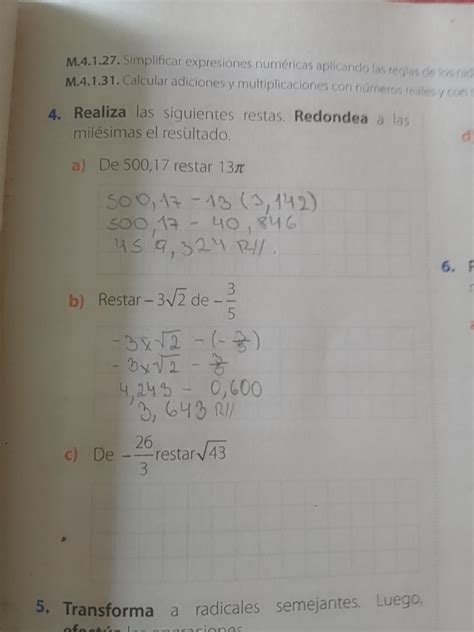 M.4.1.27. Simplificar expresiones numéricas aplicando las reglas de los rad
M.4.1.31. Calcular adiciones y multiplicaciones con números reales y con
4. Realiza las siguientes restas. Redondea a las
milésimas el resultado.
d
a) De 500,17 restar 13π
500,17 - 13 (3,142)
500,17 - 40,846
459,324 R//.
6.
b) Restar -3√2 de -3/5
-3x√2 - (-3/5)
-3x√2 - 3/5
4,243 - 0,600
3,643 R//
c) De -26/3 restar √43
5. Transforma a radicales semejantes. Luego,
efectúa las operaciones